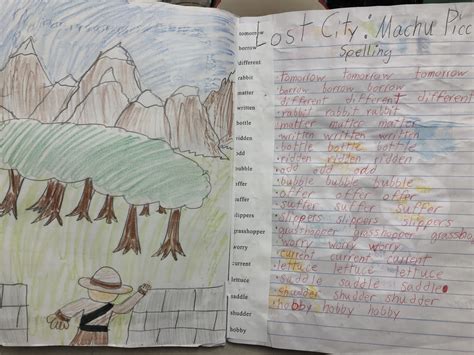 tomorrow
borrow
different
rabbit
matter
written
bottle
ridden
odd
bubble
offer
suffer
slippers
grasshopper
worry
current
lettuce
saddle
shudder
hobby
Lost City: Machu Picc
Spelling
·tomorrow tomorrow tomorrow
·borrow borrow borrow
·different different different
·rabbit rabbit rabbit
·matter matter matter
·written written written
·bottle bottle bottle
·ridden ridden ridden
·odd odd odd
·bubble bubble bubble
·offer offer offer
·suffer suffer suffer
·slippers slippers slippers
·grasshopper grasshopper grasshop
·worry worry worry
·current current current
·lettuce lettuce lettuce
·saddle saddle saddle
·shudder shudder shudder
·hobby hobby hobby